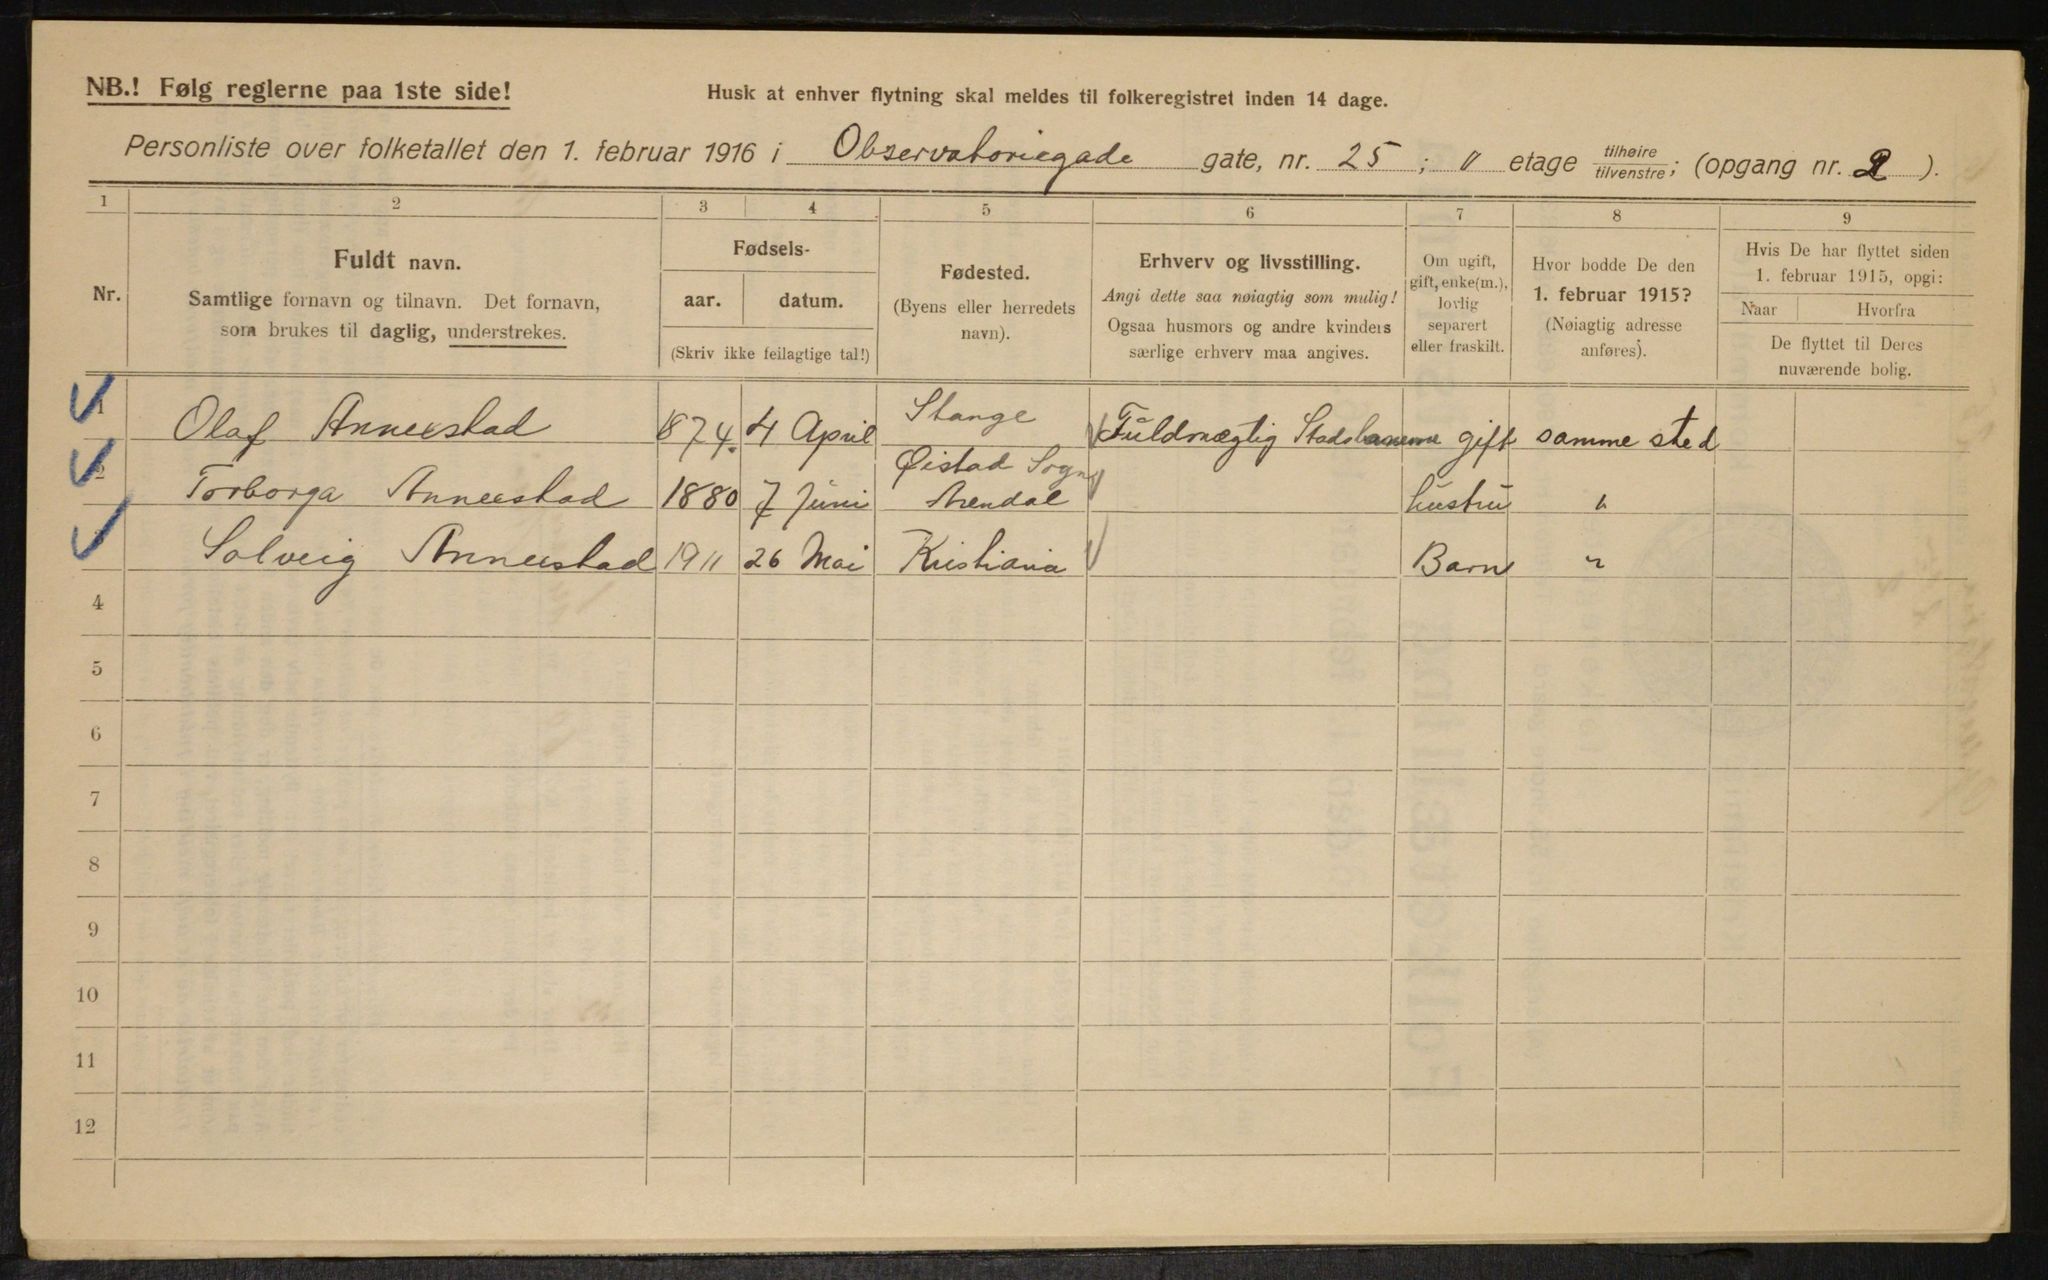 NB.! Følg reglerne paa 1ste side!
Husk at enhver flytning skal meldes til folkeregistret inden 14 dage.
Personliste over folketallet den 1. februar 1916 i Observatoriegade gate, nr. 25 ; etage tilhøire/tilvenstre; (opgang nr. 2 ).
1 2 3 4 5 6 7 8 9
Nr.
Fuldt navn.
Samtlige fornavn og tilnavn. Det fornavn,
som brukes til daglig, understrekes.
Fødsels-
aar. datum.
(Skriv ikke feilagtige tal!)
Fødested.
(Byens eller herredets
navn).
Erhverv og livsstilling.
Angi dette saa nøiagtig som mulig!
Ogsaa husmors og andre kvinders
særlige erhverv maa angives.
Om ugift,
gift, enke(m.),
lovlig
separert
eller fraskilt.
Hvor bodde De den
1. februar 1915?
(Nøiagtig adresse
anføres).
Hvis De har flyttet siden
1. februar 1915, opgi:
Naar Hvorfra
De flyttet til Deres
nuværende bolig.
1 Olaf Annerstad 1874. 4 April Stange Fuldmægtig Stadsbanerne gift samme sted
2 Torborga Annerstad 1880 7 Juni Øistad Sogn
Arendal hustru "
Solveig Annerstad 1911 26 Mai Kristiania Barn "
4
5
6
7
8
9
10
11
12